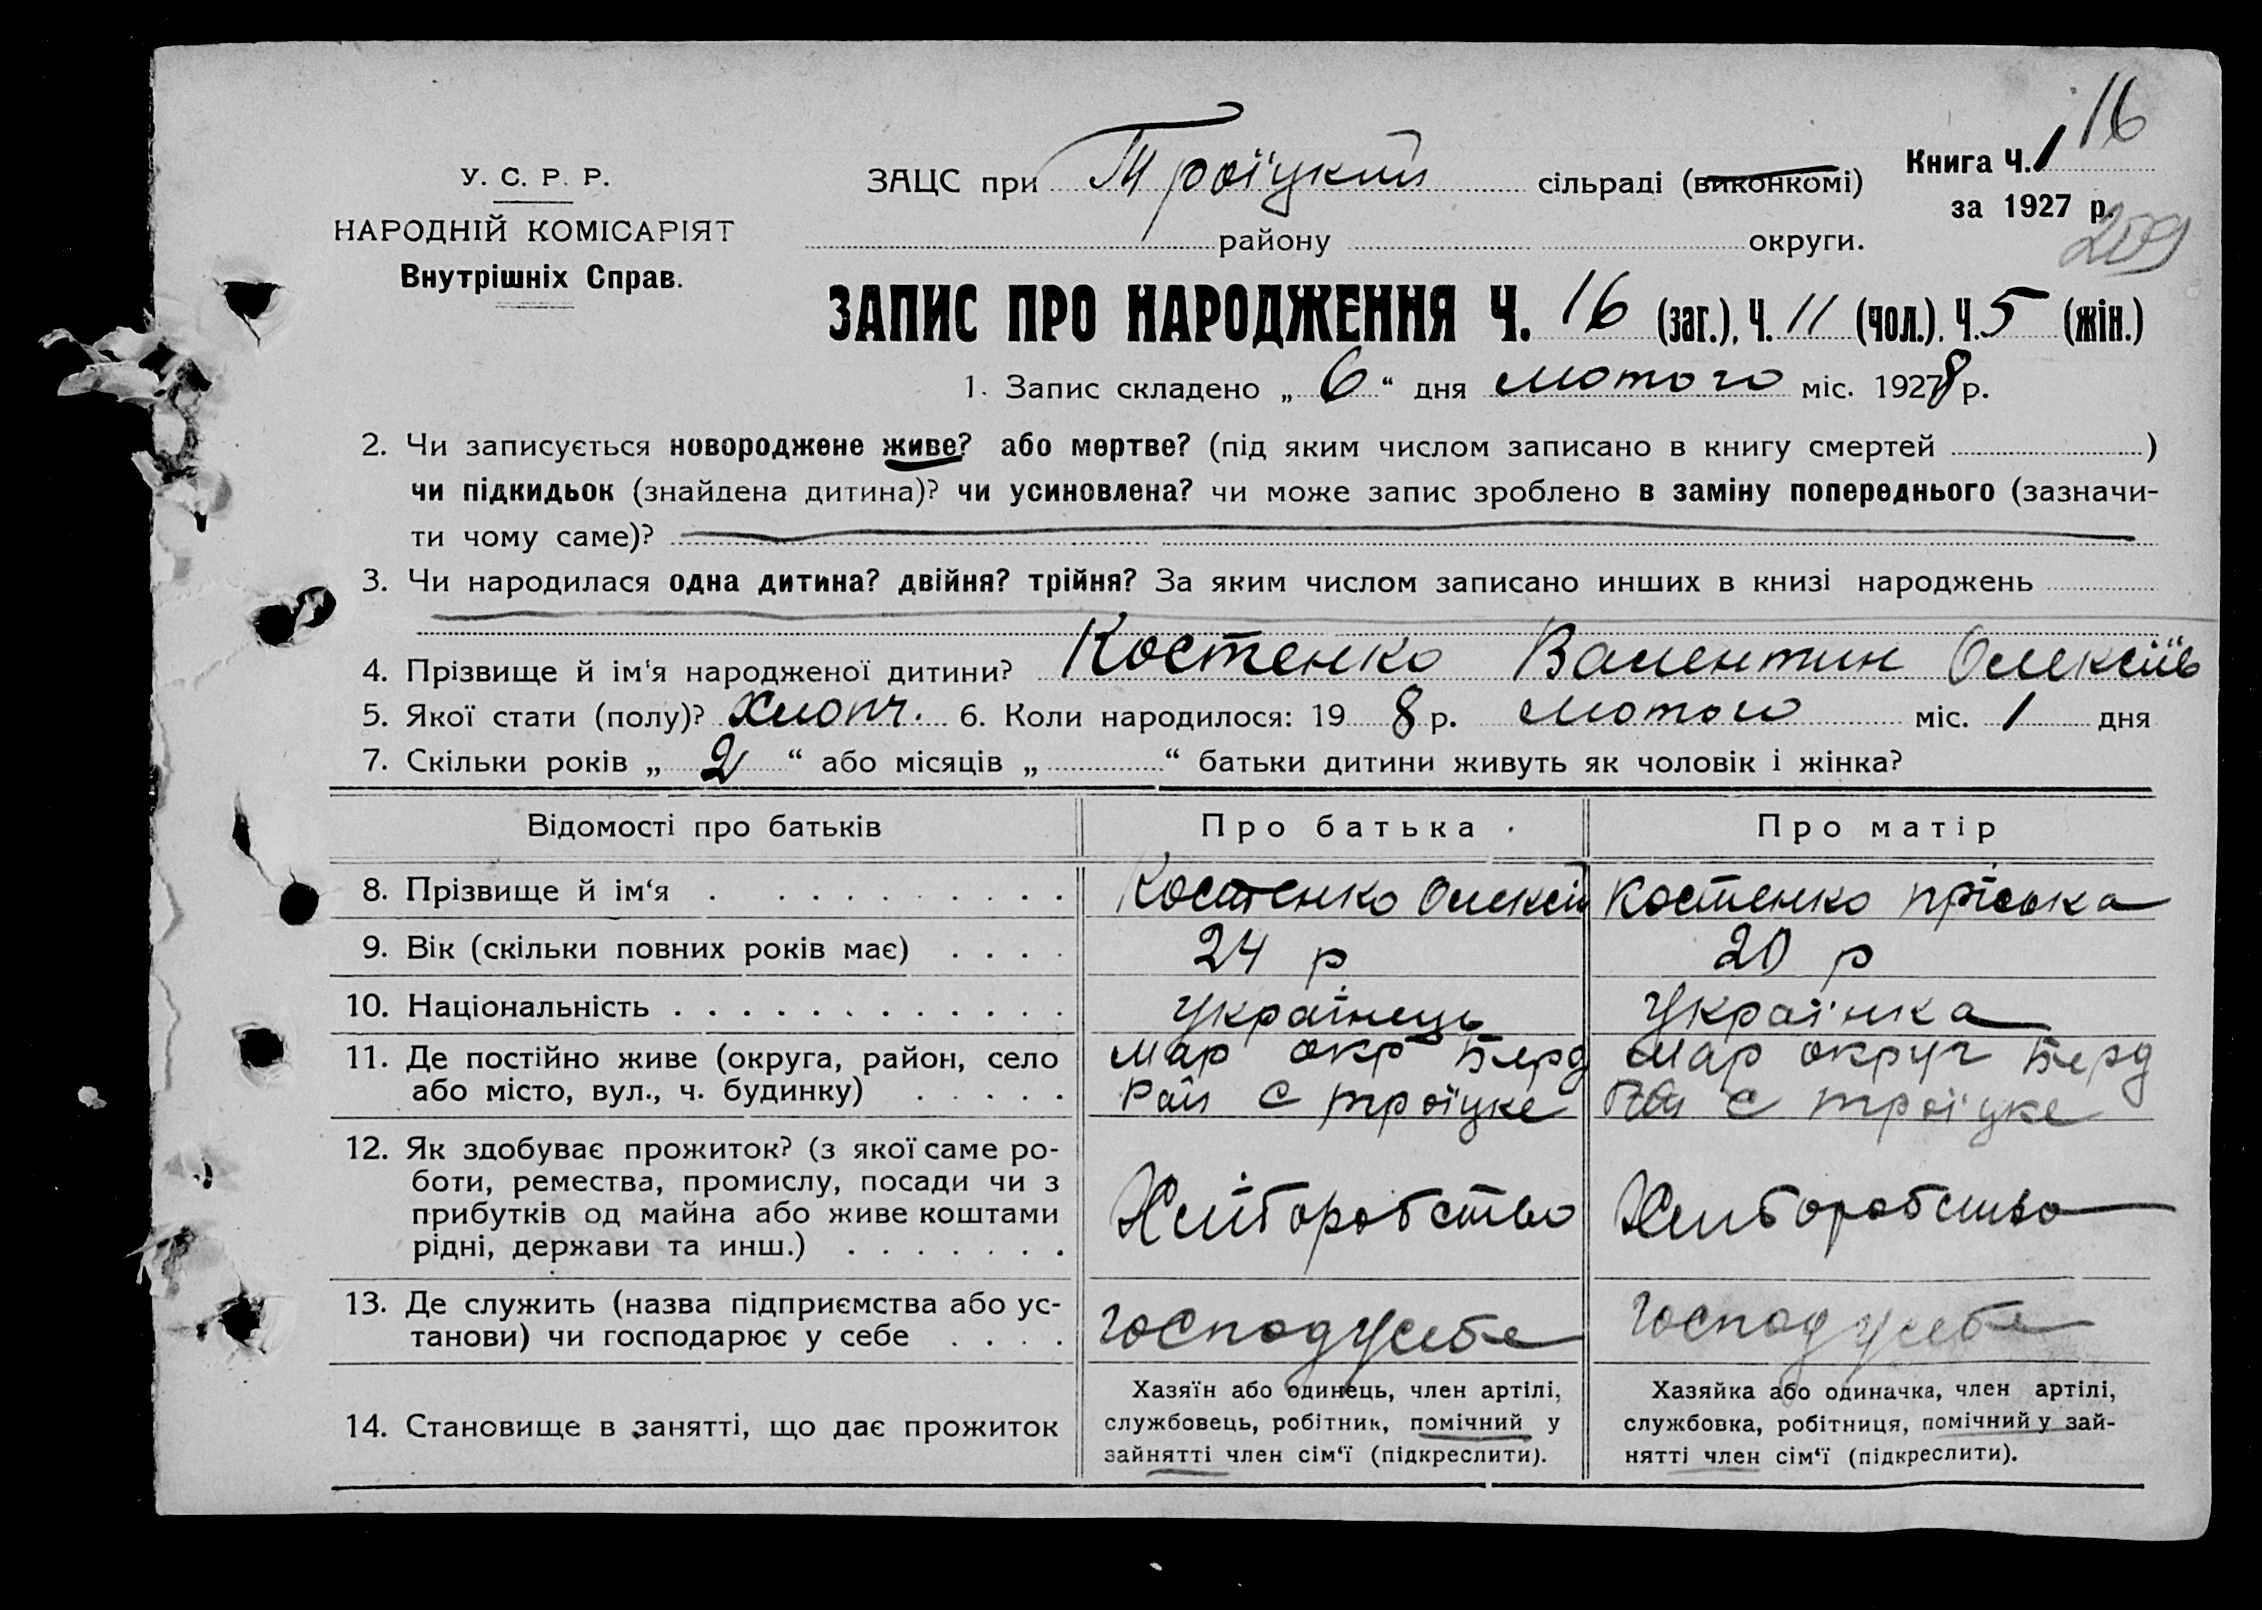 16
У. С. Р. Р.
НАРОДНІЙ КОМІСАРІЯТ
Внутрішніх Справ.
ЗАЦС при Троїцкій сільраді (виконкомі)
району округи.
Книга Ч. 1
за 1927 р.
209
ЗАПИС ПРО НАРОДЖЕННЯ Ч. 16 (заг.), Ч. 11 (чол.), Ч. 5 (жін.)
1. Запис складено „ 6 “ дня лютого міс. 1928 р.
2. Чи записується новороджене живе? або мертве? (під яким числом записано в книгу смертей )
чи підкидьок (знайдена дитина)? чи усиновлена? чи може запис зроблено в заміну попереднього (зазначи-
ти чому саме)?
3. Чи народилася одна дитина? двійня? трійня? За яким числом записано инших в книзі народжень
4. Прізвище й ім'я народженої дитини? Костенко Валентин Олексіїв
5. Якої стати (полу)? Хлопч. 6. Коли народилося: 19 8 р. лютого міс. 1 дня
7. Скільки років „ 2 “ або місяців „ “ батьки дитини живуть як чоловік і жінка?
Відомості про батьків Про батька Про матір
8. Прізвище й ім‘я Костенко Олексій Костенко Пріська
9. Вік (скільки повних років має) 24 р 20 р
10. Національність Українець Українка
11. Де постійно живе (округа, район, село Мар окр Берд Мар округ Берд
або місто, вул., ч. будинку) Рай С Троїцке Рай С Троїцке
12. Як здобуває прожиток? (з якої саме ро-
боти, ремества, промислу, посади чи з
прибутків од майна або живе коштами
рідні, держави та инш.) Хліборобство Хліборобство
13. Де служить (назва підприємства або ус-
танови) чи господарює у себе Господ у себе Господ у себе
14. Становище в занятті, що дає прожиток
Хазяїн або одинець, член артілі,
службовець, робітник, помічний у
зайнятті член сім‘ї (підкреслити).
Хазяйка або одиначка, член артілі,
службовка, робітниця, помічний у зай-
нятті член сім‘ї (підкреслити).